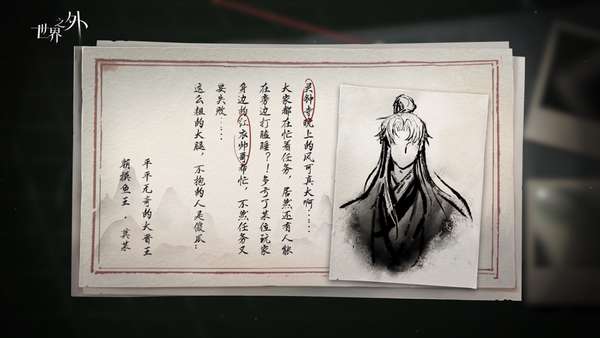 世界之外
灵钟寺晚上的风可真大啊……
大家都在忙着任务，居然还有人能
在旁边打瞌睡？！多亏了某位玩家
身边的红衣帅哥帮忙，不然任务又
要失败……
这么粗的大腿，不抱的人是傻瓜：
平平无奇的大胃王
兼摸鱼王·莫某